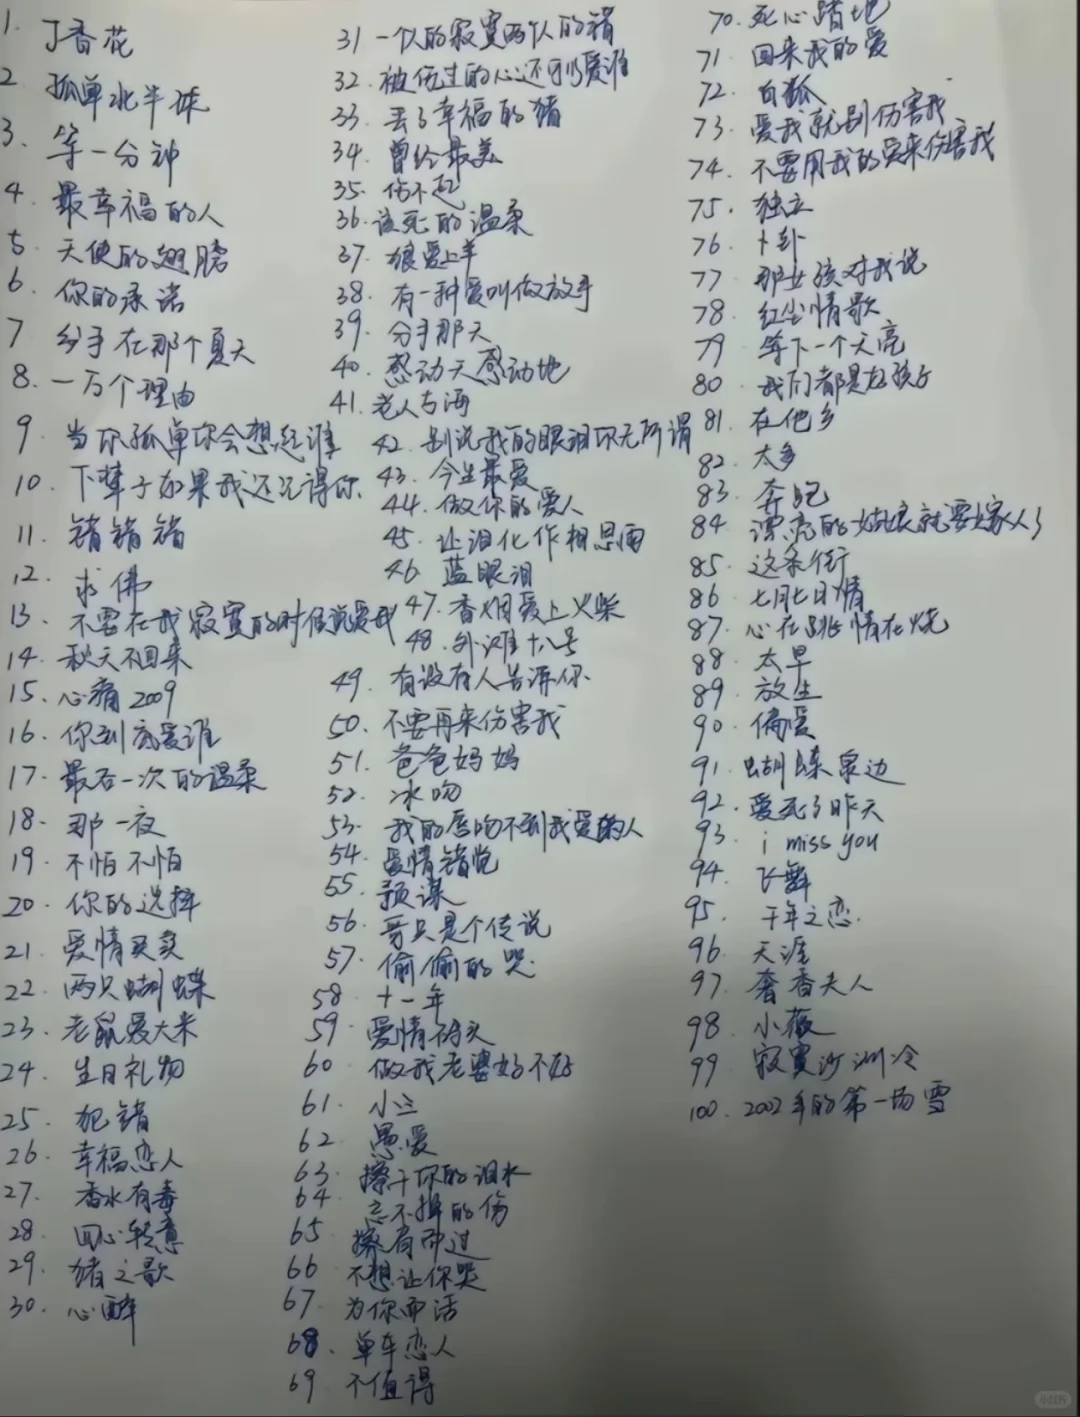 1. 丁香花
2 孤单北半球
3. 等一分钟
4 最幸福的人
5 天使的翅膀
6 你的承诺
7 分手在那个夏天
8. 一万个理由
9 当你孤单你会想起谁
10. 下辈子如果我还记得你
11. 错错错
12. 求佛
13. 不要在我寂寞的时候说爱我
14. 秋天不回来
15. 心痛2009
16. 你到底爱谁
17. 最后一次的温柔
18. 那一夜
19. 不怕不怕
20. 你的选择
21. 爱情买卖
22. 两只蝴蝶
23. 老鼠爱大米
24. 生日礼物
25. 犯错
26. 幸福恋人
27. 香水有毒
28. 回心转意
29. 猪之歌
30. 心醉
31 一个人的寂寞两个人的错
32. 被伤过的心还可以爱谁
33. 丢了幸福的猪
34. 曾经最美
35. 伤不起
36. 该死的温柔
37. 狼爱上羊
38. 有一种爱叫做放手
39. 分手那天
40. 感动天感动地
41. 老人与海
42. 别说我的眼泪你无所谓
43. 今生最爱
44. 做你的爱人
45. 让泪化作相思雨
46 蓝眼泪
47. 香烟爱上火柴
48. 外滩十八号
49. 有没有人告诉你
50. 不要再来伤害我
51. 爸爸妈妈
52. 冰吻
53. 我的唇吻不到我爱的人
54. 爱情错觉
55 预谋
56. 哥只是个传说
57. 偷偷的哭
58 十一年
59 爱情码头
60 做我老婆好不好
61. 小三
62 愚爱
63 擦干你的泪水
64 忘不掉的伤
65 擦肩而过
66 不想让你哭
67 为你而活
68. 单车恋人
69 不值得
70. 死心踏地
71 回来我的爱
72. 白狐
73. 爱我就别伤害我
74. 不要用我的爱来伤害我
75. 独立
76. 卜卦
77. 那女孩对我说
78. 红尘情歌
79 等下一个天亮
80 我们都是好孩子
81. 在他乡
82. 太多
83. 奔跑
84 漂亮的姑娘就要嫁人了
85. 这条街
86 七月七日情
87. 心在跳情在烧
88 太早
89 放生
90 偏爱
91. 蝴蝶泉边
92. 爱死了昨天
93. i miss you
94. 飞舞
95. 千年之恋.
96 天涯
97. 奢香夫人
98 小薇
99 寂寞沙洲冷
100. 2002年的第一场雪